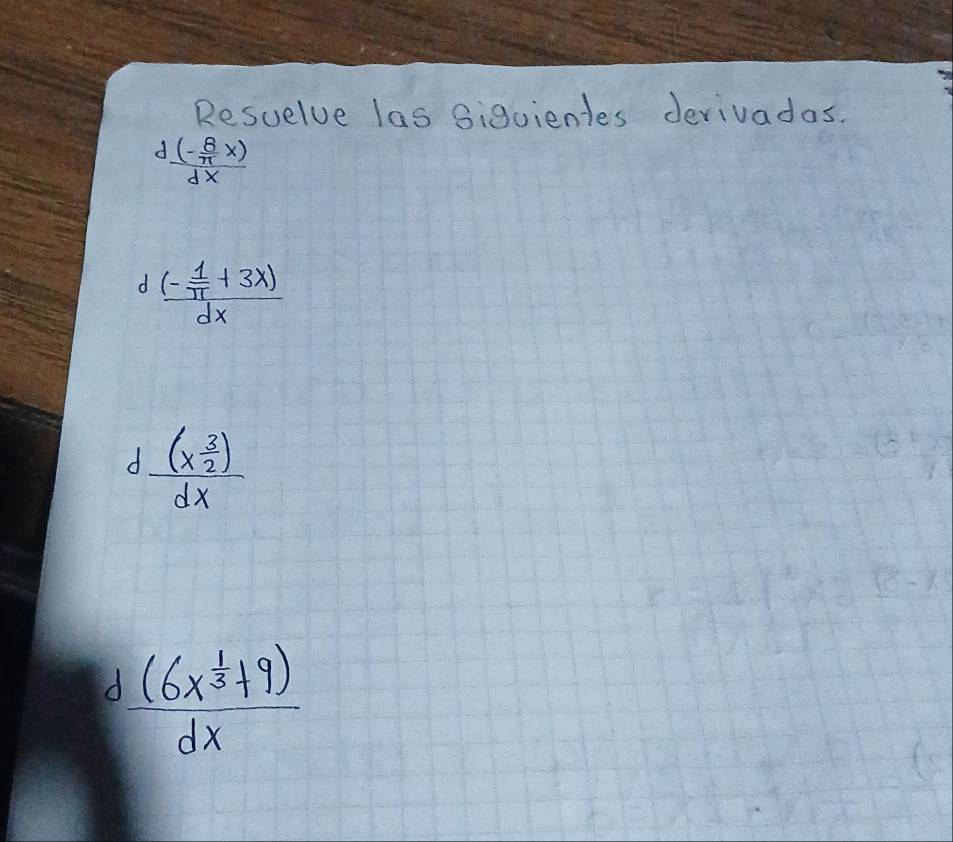 Resuelve las siguientes derivadas.
d(-8/π x)/dx
d(-1/π + 3x)/dx
d(x 3/2)/dx
d(6x^1/3+9)/dx